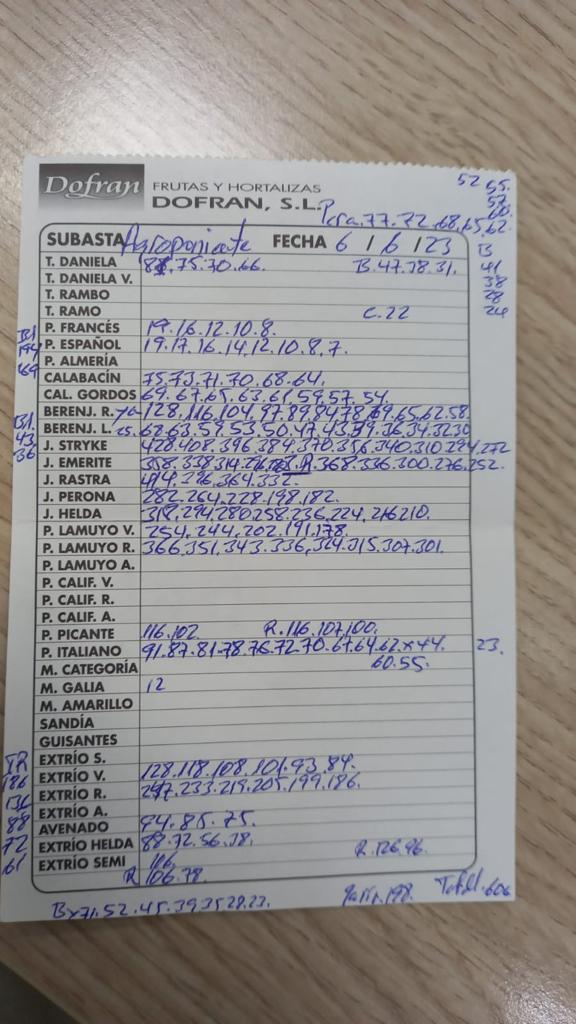 Dofran FRUTAS Y HORTALIZAS
DOFRAN, S.L.
52 55.
57
60.
Pera.77.72.68.65.62.
SUBASTA Agroponiente FECHA 6 / 6 / 23
T. DANIELA 88.75.70.66. B.47.38.31.
B
41
38
28
24
T. DANIELA V.
T. RAMBO
T. RAMO C.22
P. FRANCÉS 19.16.12.10.8.
P. ESPAÑOL 19.17.16.14.12.10.8.7.
P. ALMERÍA
CALABACÍN 75.73.71.70.68.64.
CAL. GORDOS 69.67.65.63.61.59.57.54.
BERENJ. R. 128.116.104.97.89.84.78.69.65.62.58
BERENJ. L. 68.63.59.53.50.47.43.39.36.34.32.30
J. STRYKE 428.408.396.384.370.356.340.310.294.272
J. EMERITE 358.338.314. 368.336.300.276.252.
J. RASTRA 414.396.364.332.
J. PERONA 282.264.228.198.182.
J. HELDA 318.294.280.258.236.224.216.210.
P. LAMUYO V. 254.244.202.191.178.
P. LAMUYO R. 366.351.343.336.324.315.307.301.
P. LAMUYO A.
P. CALIF. V.
P. CALIF. R.
P. CALIF. A.
P. PICANTE 116.102. R.116.107.100.
P. ITALIANO 91.87.81.78.76.72.70.67.64.62x44. 23.
M. CATEGORÍA 60.55.
M. GALIA 12
M. AMARILLO
SANDÍA
GUISANTES
EXTRÍO S.
EXTRÍO V. 128.118.108.101.93.84.
EXTRÍO R. 247.233.219.205.199.186.
EXTRÍO A.
AVENADO 94.85.75.
EXTRÍO HELDA 88.72.56.38. R.126.96.
EXTRÍO SEMI 116
R 106.78.
Bx71.52.45.39.35.28.23.